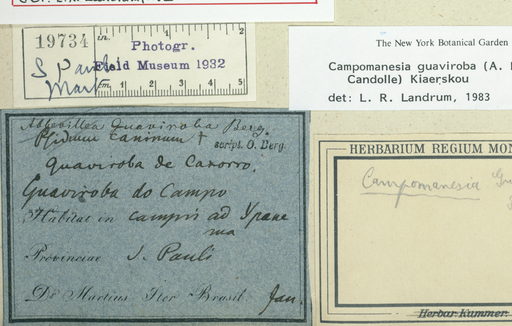 19734
in.
Photogr.
Field Museum 1932
S. Paulo
Mart
cm. 1 2 3 4 5
The New York Botanical Garden
Campomanesia guaviroba (A.
Candolle) Kiaerskou
det: L. R. Landrum, 1983
Abbevillea Guaviroba Berg.
Psidium caninum † script. O. Berg.
Guaviroba de Caxorro.
Guaviroba do Campo
Habitat in campis ad Ypane
ma
Provinciae S. Pauli
Dr Martius Iter Brasil Jan.
HERBARIUM REGIUM MON
Campomanesia
Herbar. Kummer.